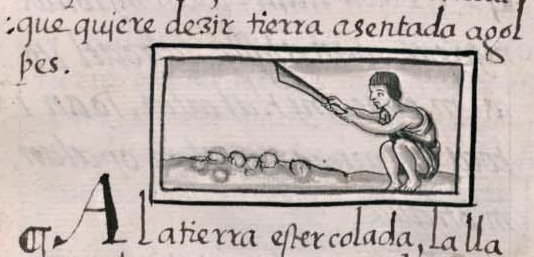 :que quiere dezir tierra asentada agol
pes.
¶ A la tierra estercolada, la lla